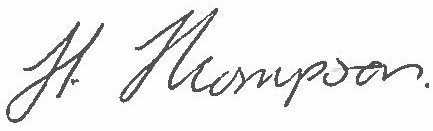 H. Thompson.